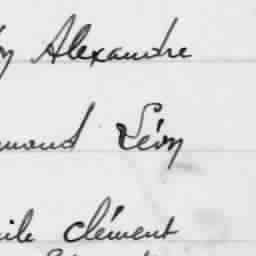 Alexandre
mond Léon
ile Clément